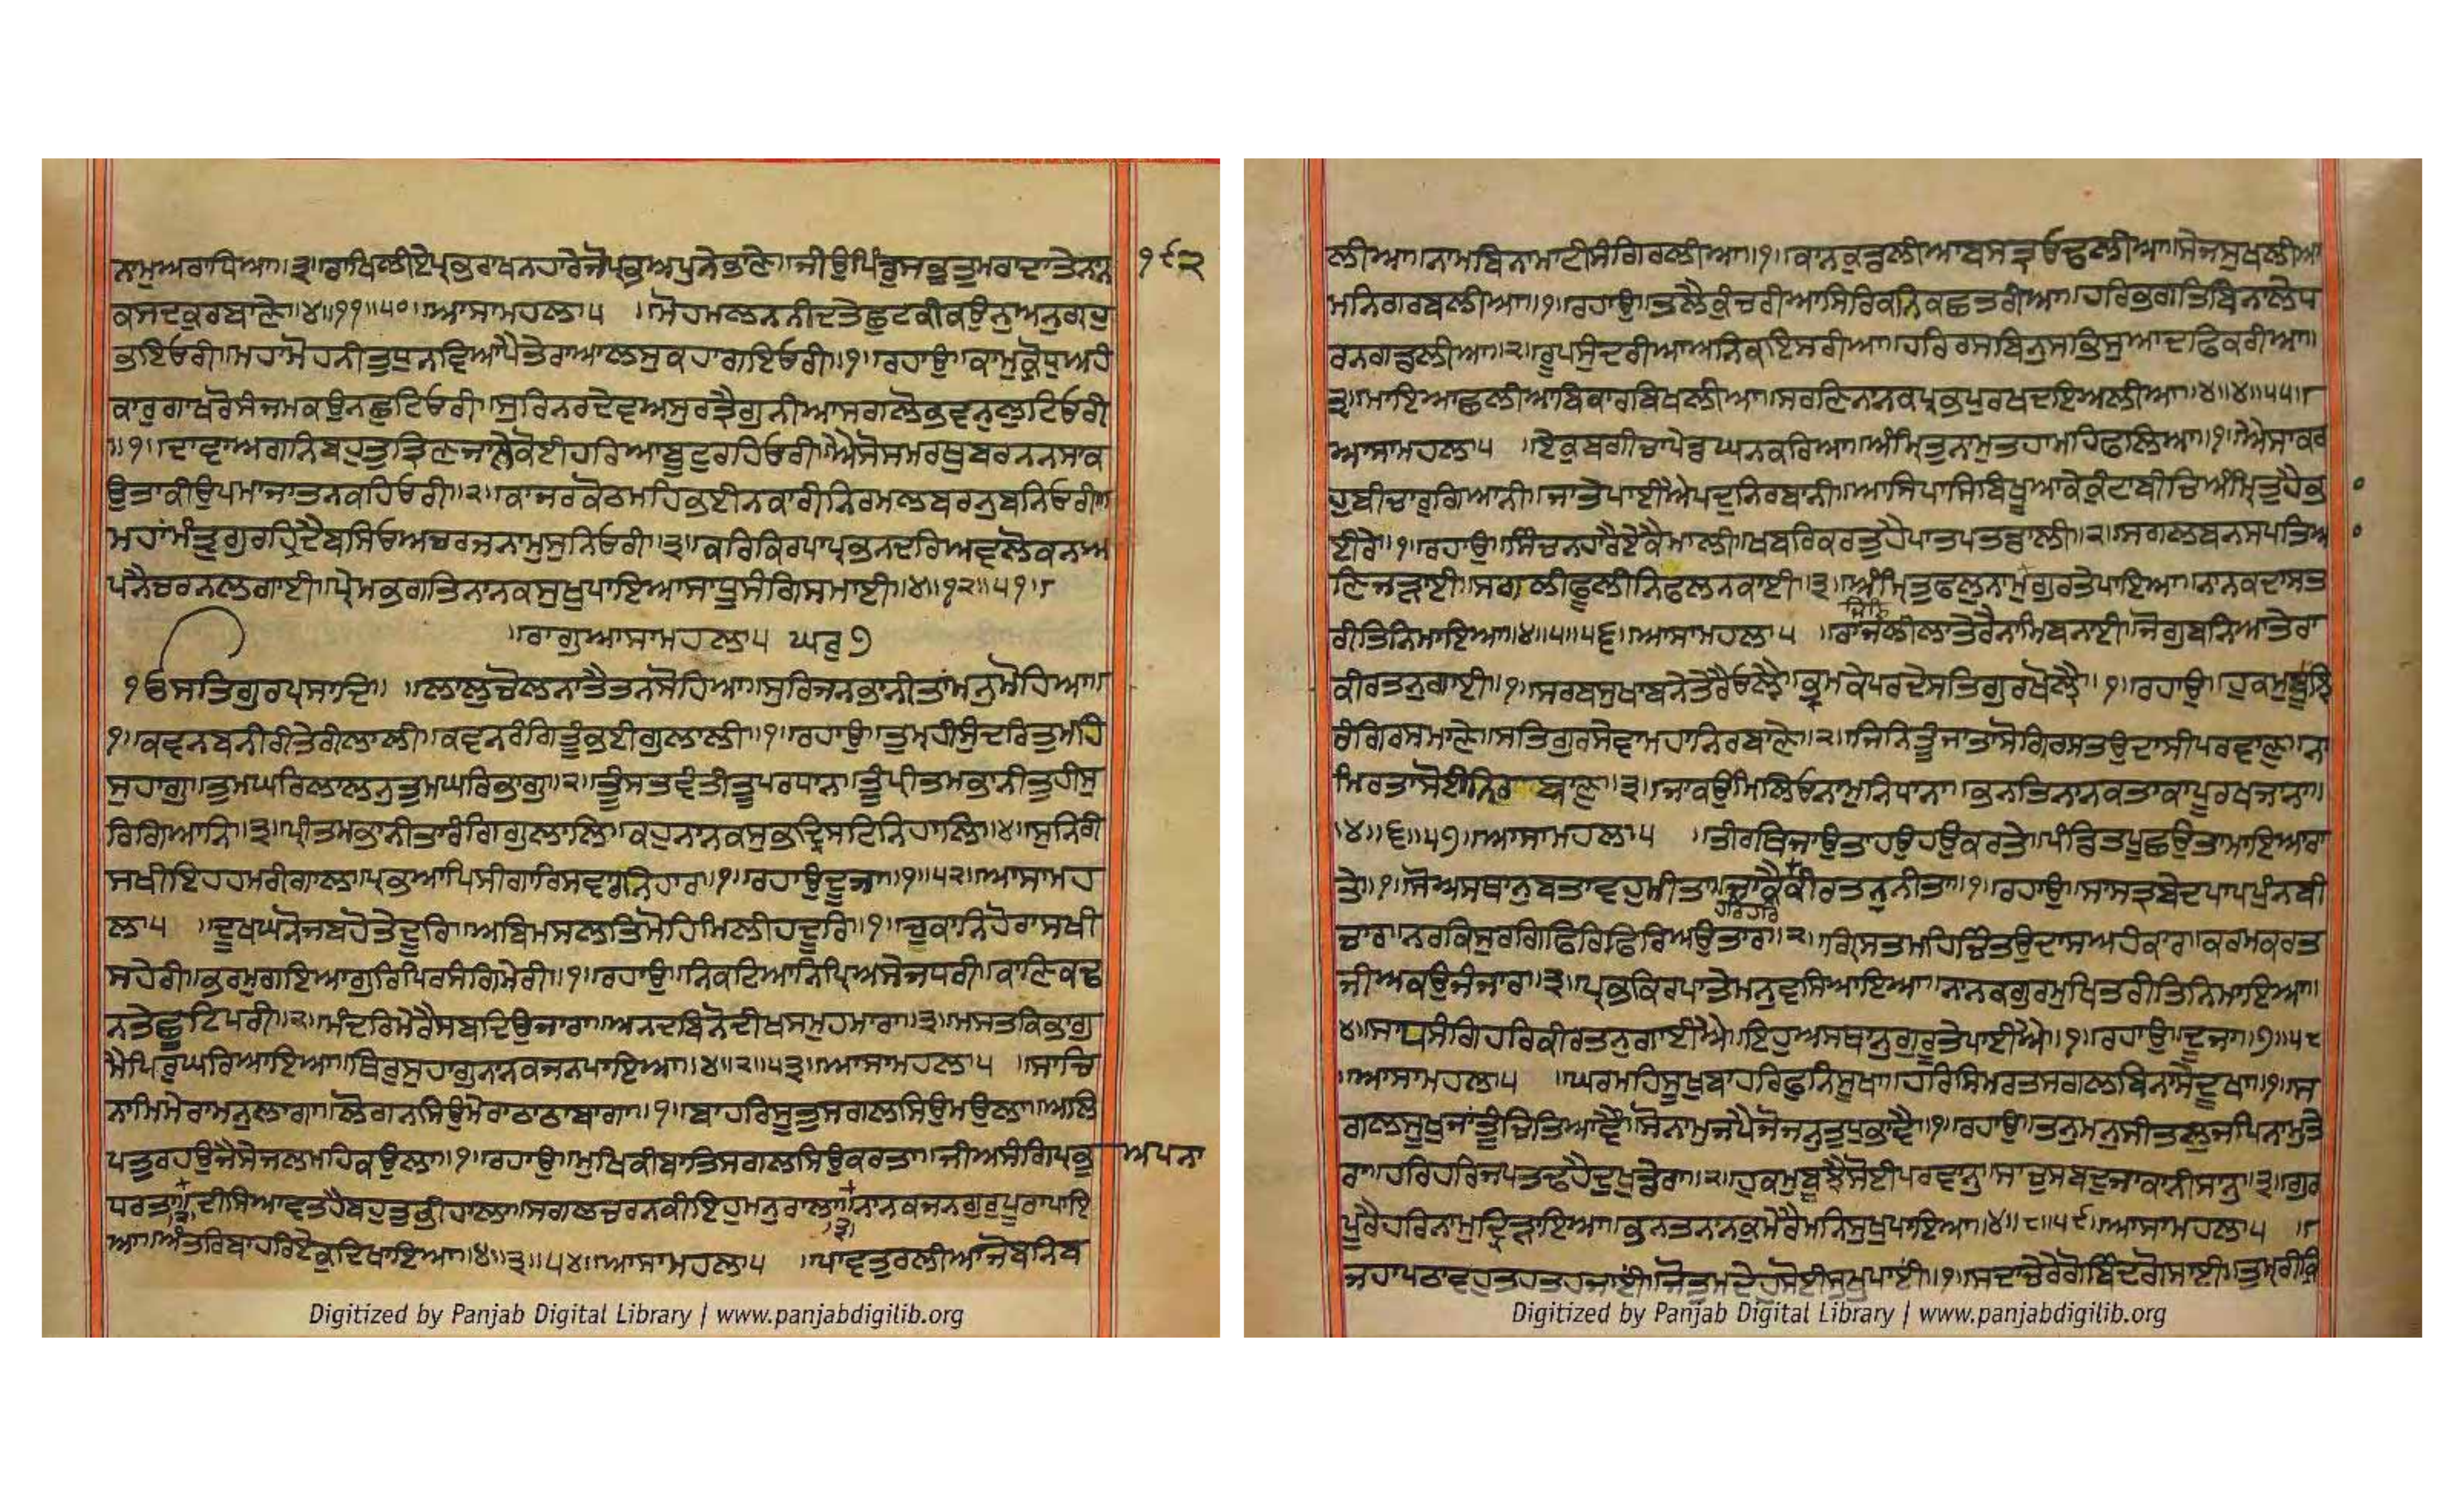 ਨਾਮੁਅਰਾਧਿਆ॥੩॥ਰਾਖਿਲੀਏਪ੍ਰਭੁਰਾਖਨਹਾਰੇਜੋਪ੍ਰਭੁਅਪੁਨੇਭਾਣੇ॥ਜੀਉਪਿੰਡੁਸਭੁਤੁਮਰਾਦਾਤੇਨਾਨ
੧੯੨
ਕਸਦਕੁਰਬਾਣੇ॥੪॥੧੧॥੫੦॥ਆਸਾਮਹਲਾ੫ ॥ਮੋਹਮਲਨਨੀਦਤੇਛੁਟਕੀਕਉਨੁਅਨੁਗ੍ਰਹੁ
ਭਇਓਰੀ॥ਮਹਾਮੋਹਨੀਤੁਧੁਨਵਿਆਪੈਤੇਰਾਆਲਸੁਕਹਾਗਇਓਰੀ॥੧॥ਰਹਾਉ॥ਕਾਮੁਕ੍ਰੋਧੁਅਹੰ
ਕਾਰੁਗਾਖਰੋਸੰਜਮਕਉਨਛੁਟਿਓਰੀ॥ਸੁਰਿਨਰਦੇਵਅਸੁਰਤ੍ਰੈਗੁਨੀਆਸਗਲੋਭਵਨੁਲੁਟਿਓਰੀ
॥੧॥ਦਾਵਾਅਗਨਿਬਹੁਤੁਤ੍ਰਿਣਜਾਲੇਕੋਈਹਰਿਆਬੂਟੁਰਹਿਓਰੀ॥ਐਸੋਸਮਰਥੁਬਰਨਨਸਾਕ
ਉਤਾਕੀਉਪਮਾਜਾਤਨਕਹਿਓਰੀ॥੨॥ਕਾਜਰਕੋਠਮਹਿਭਈਨਕਾਰੀਨਿਰਮਲਬਰਨੁਬਨਿਓਰੀ॥
ਮਹਾਂਮੰਤ੍ਰੁਗੁਰਹਿਦੈਬਸਿਓਅਚਰਜਨਾਮੁਸੁਨਿਓਰੀ॥੩॥ਕਰਿਕਿਰਪਾਪ੍ਰਭਨਦਰਿਅਵਲੋਕਨਅ
ਪੁਨੈਚਰਨਲਗਾਈ॥ਪ੍ਰੇਮਭਗਤਿਨਾਨਕਸੁਖੁਪਾਇਆਸਾਧੂਸੰਗਿਸਮਾਈ॥੪॥੧੨॥੫੧॥
॥ਰਾਗੁਆਸਾਮਹਲਾ੫ ਘਰੁ੭
ੴਸਤਿਗੁਰਪ੍ਰਸਾਦਿ॥ ॥ਲਾਲੁਚੋਲਨਾਤੈਤਨਸੋਹਿਆ॥ਸੁਰਿਜਨਭਾਨੀਤਾਂਮਨੁਮੋਹਿਆ॥
੧॥ਕਵਨਬਨੀਰੀਤੇਰੀਲਾਲੀ॥ਕਵਨਰੰਗਿਤੂੰਭਈਗੁਲਾਲੀ॥੧॥ਰਹਾਉ॥ਤੁਮਹੀਸੁੰਦਰਿਤੁਮਹਿ
ਸੁਹਾਗੁ॥ਤੁਮਘਰਿਲਾਲਨੁਤੁਮਘਰਿਭਾਗੁ॥੨॥ਤੂੰਸਤਵੰਤੀਤੂਪਰਧਾਨਾ॥ਤੂੰਪ੍ਰੀਤਮਭਾਨੀਤੁਹੀਸੁ
ਰਿਗਿਆਨਿ॥੩॥ਪ੍ਰੀਤਮਭਾਨੀਤਾਰੰਗਿਗੁਲਾਲਿ॥ਕਹੁਨਾਨਕਸੁਭਦ੍ਰਿਸਟਿਨਿਹਾਲਿ॥੪॥ਸੁਨਿਰੀ
ਸਖੀਇਹਹਮਰੀਗਾਲ॥ਪ੍ਰਭਆਪਿਸੀਗਾਰਿਸਵਾਰਨਿਹਾਰ॥੧॥ਰਹਾਉਦੂਜਾ॥੧॥੫੨॥ਆਸਾਮਹ
ਲਾ੫ ॥ਦੂਖਘਨੋਜਬਹੋਤੇਦੂਰਿ॥ਅਬਿਮਸਲਤਿਮੋਹਿਮਿਲੀਹਦੂਰਿ॥੧॥ਚੁਕਾਨਿਹੋਰਾਸਖੀ
ਸਹੇਰੀ॥ਭਰਮੁਗਇਆਗੁਰਿਪਿਰਸੰਗਿਮੇਰੀ॥੧॥ਰਹਾਉ॥ਨਿਕਟਿਆਨਿਪ੍ਰਿਅਸੇਜਧਰੀ॥ਕਾਣਿਕਢ
ਨਤੇਛੂਟਿਪਰੀ॥੨॥ਮੰਦਰਿਮੇਰੈਸਬਦਿਉਜਾਰਾ॥ਅਨਦਬਿਨੋਦੀਖਸਮੁਹਮਾਰਾ॥੩॥ਮਸਤਕਿਭਾਗੁ
ਮੈਪਿਰੁਘਰਿਆਇਆ॥ਥਿਰੁਸੁਹਾਗੁਨਾਨਕਜਨਪਾਇਆ॥੪॥੨॥੫੩॥ਆਸਾਮਹਲਾ੫ ॥ਸਾਚਿ
ਨਾਮਿਮੇਰਾਮਨੁਲਾਗਾ॥ਲੋਗਨਸਿਉਮੇਰਾਠਾਠਾਬਾਗਾ॥੧॥ਬਾਹਰਿਸੂਤੁਸਗਲਸਿਉਮਉਲਾ॥ਅਲਿ
ਪਤੁਰਹਉਜੈਸੇਜਲਮਹਿਕਉਲਾ॥੧॥ਰਹਾਉ॥ਮੁਖਿਕੀਬਾਤਿਸਗਲਸਿਉਕਰਤਾ॥ਜੀਅਸੰਗਿਪ੍ਰਭੁ
ਅਪਨਾ
ਧਰਤਾ॥ਦੀਸਿਆਵਤਹੈਬਹੁਤੁਭੀਹਾਲਾ॥ਸਗਲਚਰਨਕੀਇਹੁਮਨੁਰਾਲਾ॥ਨਾਨਕਜਨਗੁਰੁਪੂਰਾਪਾਇ
॥੩॥
ਆ॥ਅੰਤਰਿਬਾਹਰਿਏਕੁਦਿਖਾਇਆ॥੪॥੩॥੫੪॥ਆਸਾਮਹਲਾ੫ ॥ਪਾਵਤੁਰਲੀਆਜੋਬਨਿਬ
Digitized by Panjab Digital Library | www.panjabdigilib.org
ਲੀਆ॥ਨਾਮਬਿਨਾਮਾਟੀਸੰਗਿਰਲੀਆ॥੧॥ਕਾਨਕੁੰਡਲੀਆਬਸਤ੍ਰਓਢਲੀਆ॥ਸੇਜਸੁਖਲੀਆ
ਮਨਿਗਰਬਲੀਆ॥੧॥ਰਹਾਉ॥ਤਲੈਕੁੰਚਰੀਆਸਿਰਿਕਨਿਕਛਤਰੀਆ॥ਹਰਿਭਗਤਿਬਿਨਾਲੇਧ
ਰਨਗਡਲੀਆ॥੨॥ਰੂਪਸੁੰਦਰੀਆਅਨਿਕਇਸਤਰੀਆ॥ਹਰਿਰਸਬਿਨੁਸਭਿਸੁਆਦਫਿਕਰੀਆ॥
੩॥ਮਾਇਆਛਲੀਆਬਿਕਾਰਬਿਖਲੀਆ॥ਸਰਣਿਨਾਨਕਪ੍ਰਭਪੁਰਖਦਇਅਲੀਆ॥੪॥੪॥੫੫॥
ਆਸਾਮਹਲਾ੫ ॥ਏਕੁਬਗੀਚਾਪੇਡਘਨਕਰਿਆ॥ਅੰਮ੍ਰਿਤੁਨਾਮੁਤਹਾਮਹਿਫਲਿਆ॥੧॥ਐਸਾਕਰ
ਹੁਬੀਚਾਰੁਗਿਆਨੀ॥ਜਾਤੇਪਾਈਐਪਦੁਨਿਰਬਾਨੀ॥ਆਸਿਪਾਸਿਬਿਖੂਆਕੇਕੁੰਟਾਬੀਚਿਅੰਮ੍ਰਿਤੁਹੈਭ
ਈਰੇ॥੧॥ਰਹਾਉ॥ਸਿੰਚਨਹਾਰੈਏਕੈਮਾਲੀ॥ਖਬਰਿਕਰਤੁਹੈਪਾਤਪਤਡਾਲੀ॥੨॥ਸਗਲਬਨਸਪਤਿਆ
ਣਿਜੜਾਈ॥ਸਗਲੀਫੂਲੀਨਿਫਲਨਕਾਈ॥੩॥ਅੰਮ੍ਰਿਤੁਫਲੁਨਾਮੁਗੁਰਤੇਪਾਇਆ॥ਨਾਨਕਦਾਸਤ
ਰੀਤਿਨਿਮਾਇਆ॥੪॥੫॥੫੬॥ਆਸਾਮਹਲਾ੫ ॥ਰਾਜਲੀਲਾਤੇਰੈਨਾਮਿਬਨਾਈ॥ਜੋਗੁਬਨਿਆਤੇਰਾ
ਕੀਰਤਨੁਗਾਈ॥੧॥ਸਰਬਸੁਖਾਬਨੇਤੇਰੈਓਲ੍ਹੈ॥ਭ੍ਰਮਕੇਪਰਦੇਸਤਿਗੁਰਖੋਲ੍ਹੈ॥੧॥ਰਹਾਉ॥ਹੁਕਮੁਬੂਝਿ
ਰੰਗਿਰਸਮਾਣੇ॥ਸਤਿਗੁਰਸੇਵਾਮਹਾਨਿਰਬਾਣੇ॥੨॥ਜਿਨਿਤੂੰਜਾਤਾਸੋਗਿਰਸਤਉਦਾਸੀਪਰਵਾਣੁ॥ਨਾ
ਮਿਰਤਾਸੋਈਨਿਰਬਾਣੁ॥੩॥ਜਾਕਉਮਿਲਿਓਨਾਮੁਨਿਧਾਨਾ॥ਭਨਤਿਨਾਨਕਤਾਕਾਪੂਰਖਜਾਨਾ॥
੪॥੬॥੫੭॥ਆਸਾਮਹਲਾ੫ ॥ਤੀਰਥਿਜਾਉਤਾਹਉਹਉਕਰਤੇ॥ਪੰਡਿਤਪੁਛਉਤਾਮਾਇਆਰਾ
ਤੇ॥੧॥ਸੋਅਸਥਾਨੁਬਤਾਵਹੁਮੀਤਾ॥ਜਾਕੈਕੀਰਤਨੁਨੀਤਾ॥੧॥ਰਹਾਉ॥ਸਾਸਤ੍ਰਬੇਦਪਾਪਪੁੰਨਬੀ
ਹਰਿਹਰਿ
ਚਾਰ॥ਨਰਕਿਸੁਰਗਿਫਿਰਿਫਿਰਿਅਉਤਾਰ॥੨॥ਗਿਰਸਤਮਹਿਚਿੰਤਉਦਾਸਅਹੰਕਾਰ॥ਕਰਮਕਰਤ
ਜੀਅਕਉਜੰਜਾਰ॥੩॥ਪ੍ਰਭਕਿਰਪਾਤੇਮਨੁਵਸਿਆਇਆ॥ਨਾਨਕਗੁਰਮੁਖਿਤਰੀਤਿਨਿਮਾਇਆ॥
੪॥ਸਾਧਸੰਗਿਹਰਿਕੀਰਤਨੁਗਾਈਐ॥ਇਹੁਅਸਥਾਨੁਗੁਰੂਤੇਪਾਈਐ॥੧॥ਰਹਾਉ॥ਦੂਜਾ॥੭॥੫੮
॥ਆਸਾਮਹਲਾ੫ ॥ਘਰਮਹਿਸੂਖੁਬਾਹਰਿਫੁਨਿਸੂਖਾ॥ਹਰਿਸਿਮਰਤਸਗਲਬਿਨਾਸੈਦੂਖਾ॥੧॥ਸ
ਗਲਸੂਖੁਜਾਂਤੂੰਚਿਤਿਆਵੈਂ॥ਸੋਨਾਮੁਜਪੈਜੋਜਨੁਤੁਧੁਭਾਵੈ॥੧॥ਰਹਾਉ॥ਤਨੁਮਨੁਸੀਤਲੁਜਪਿਨਾਮੁਤੇ
ਰਾ॥ਹਰਿਹਰਿਜਪਤਢਹੈਦੁਖਡੇਰਾ॥੨॥ਹੁਕਮੁਬੂਝੈਸੋਈਪਰਵਾਨੁ॥ਸਾਚੁਸਬਦੁਜਾਕਾਨੀਸਾਨੁ॥੩॥ਗੁਰ
ਪੂਰੈਹਰਿਨਾਮੁਦ੍ਰਿੜਾਇਆ॥ਭਨਤਨਾਨਕੁਮੇਰੈਮਨਿਸੁਖੁਪਾਇਆ॥੪॥੮॥੫੯॥ਆਸਾਮਹਲਾ੫ ॥
ਜਹਾਪਠਾਵਹੁਤਹਤਹਜਾਈਂ॥ਜੋਤੁਮਦੇਹੁਸੋਈਸੁਖੁਪਾਈਂ॥੧॥ਸਦਾਚੇਰੇਗੋਬਿੰਦਗੋਸਾਈ॥ਤੁਮ੍ਰੀਕ੍ਰਿ
Digitized by Panjab Digital Library | www.panjabdigilib.org